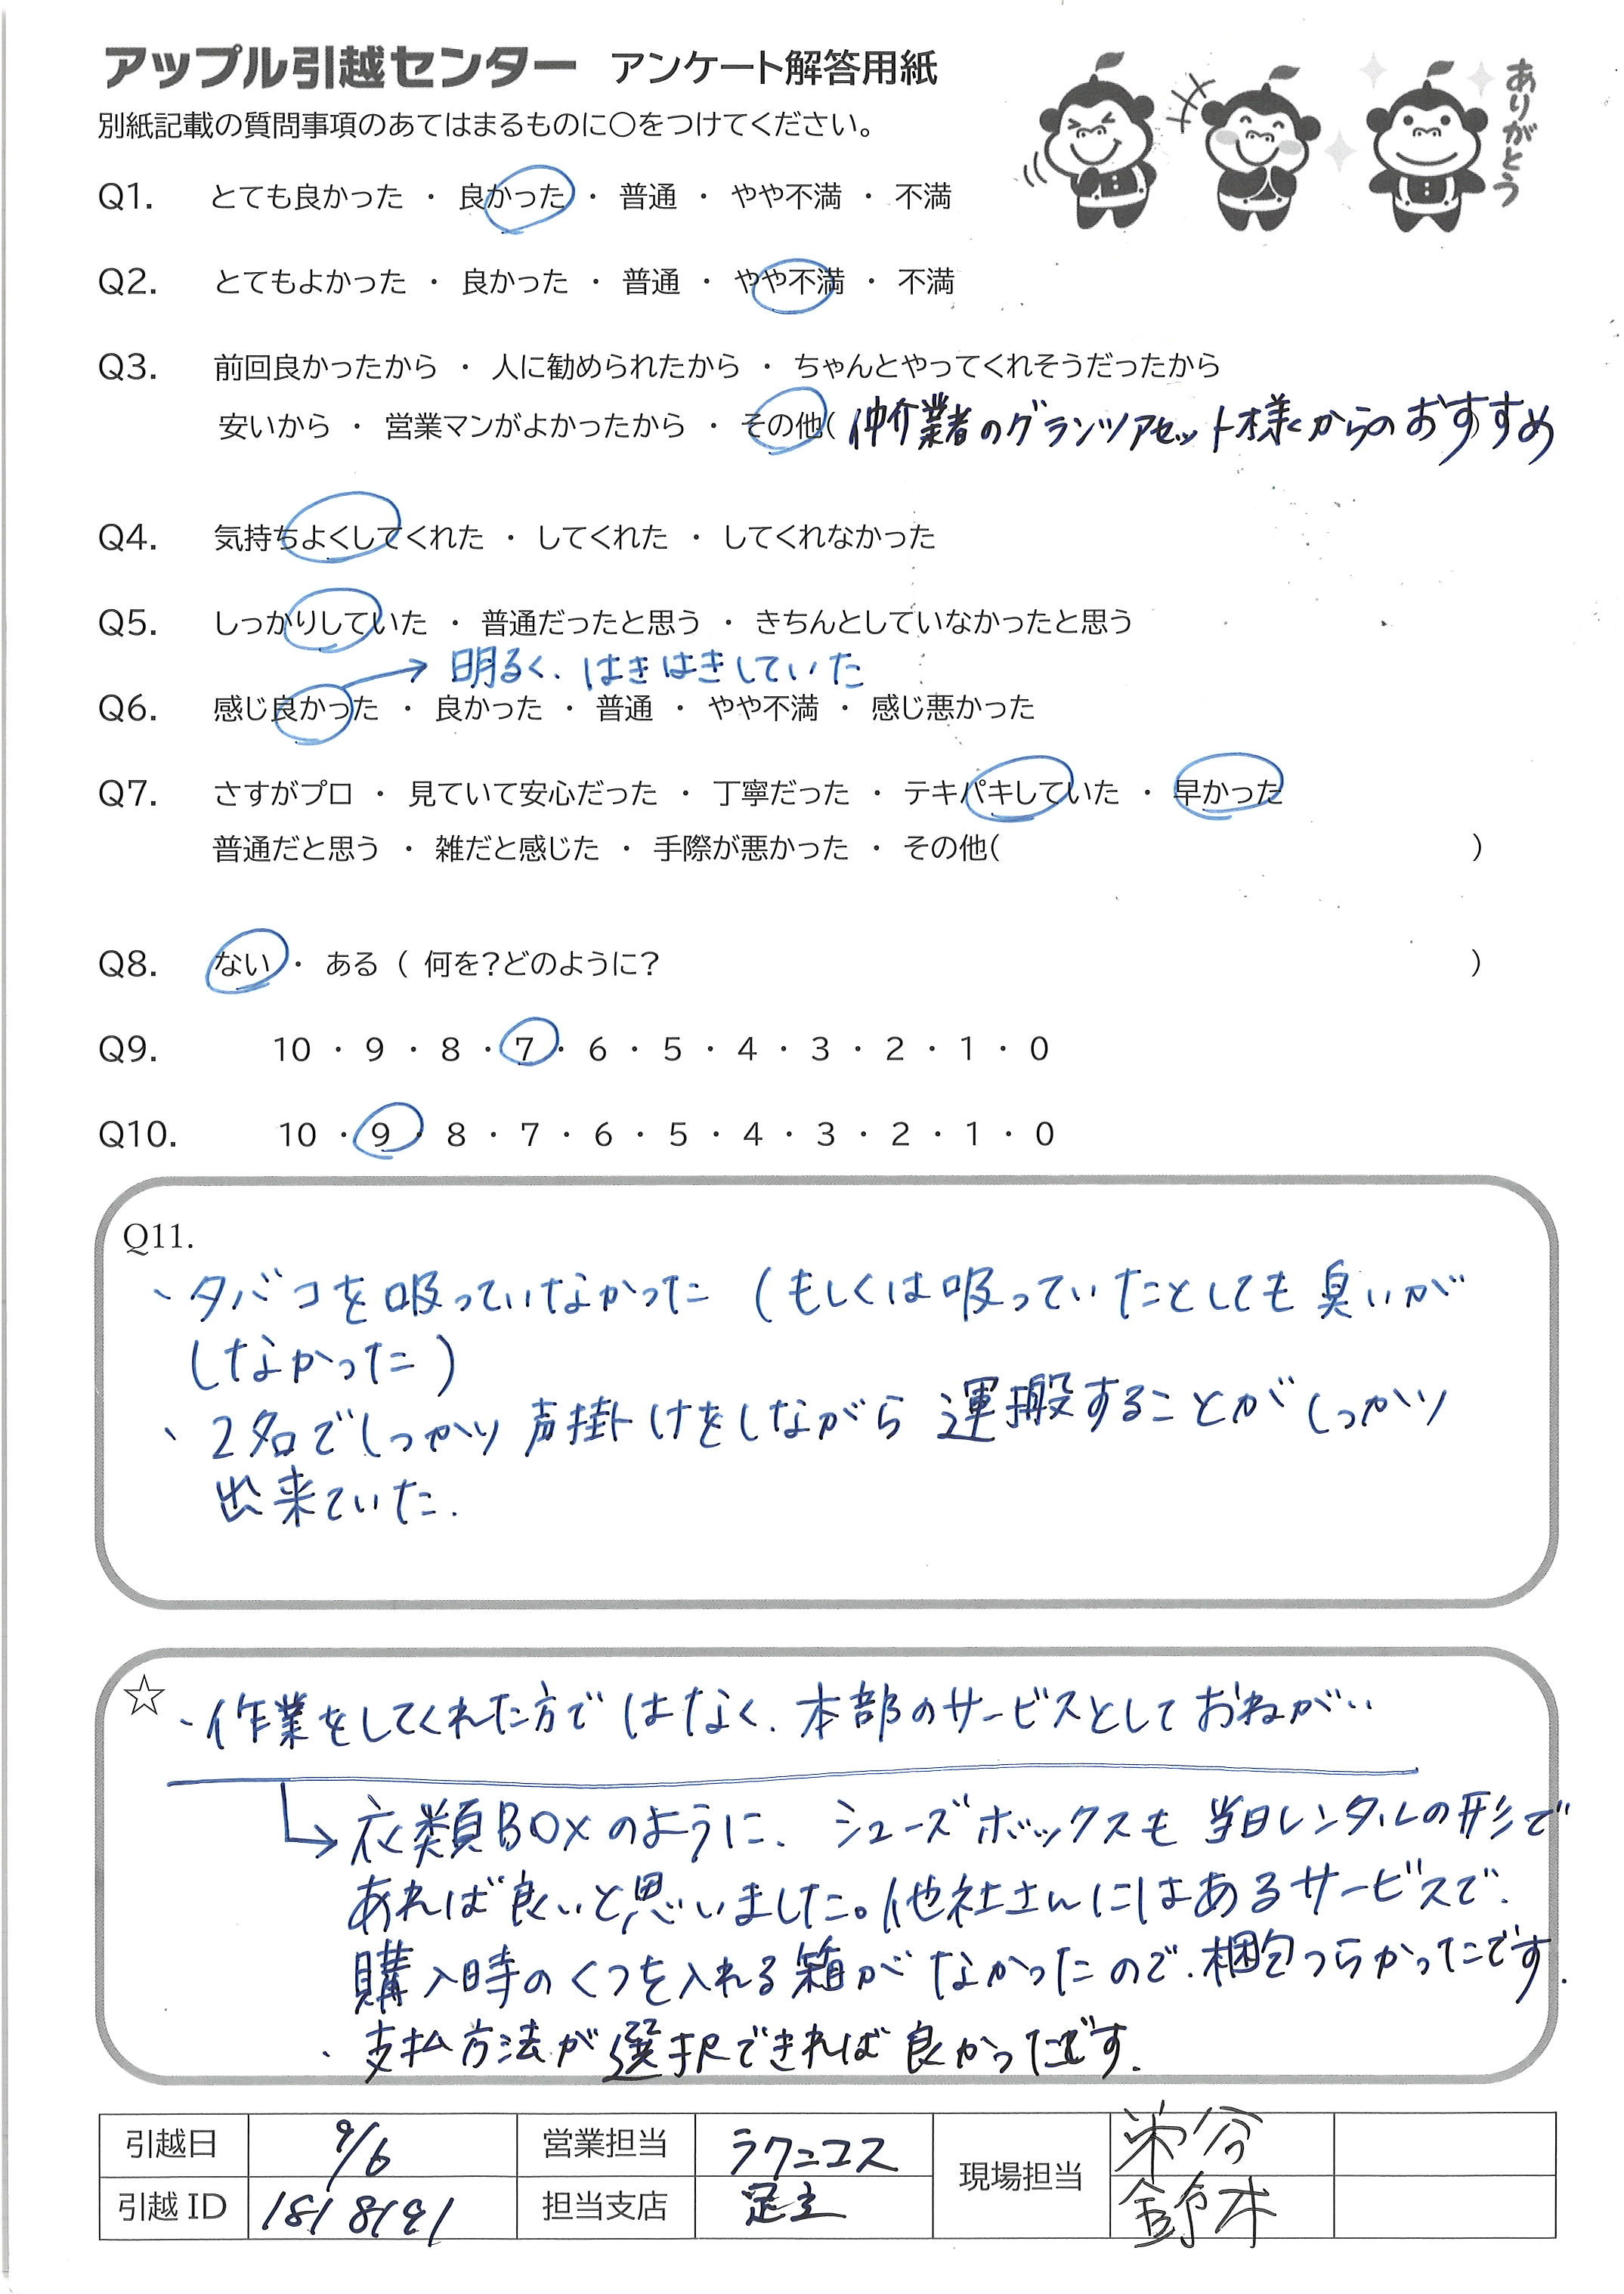 アップル引越センター アンケート解答用紙
別紙記載の質問事項のあてはまるものに○をつけてください。
ありがとう
Q1. とても良かった ・ 良かった ・ 普通 ・ やや不満 ・ 不満
Q2. とてもよかった ・ 良かった ・ 普通 ・ やや不満 ・ 不満
Q3. 前回良かったから ・ 人に勧められたから ・ ちゃんとやってくれそうだったから
安いから ・ 営業マンがよかったから ・ その他( 仲介業者のグランツアセット様からのおすすめ
Q4. 気持ちよくしてくれた ・ してくれた ・ してくれなかった
Q5. しっかりしていた ・ 普通だったと思う ・ きちんとしていなかったと思う
→ 明るく、はきはきしていた
Q6. 感じ良かった ・ 良かった ・ 普通 ・ やや不満 ・ 感じ悪かった
Q7. さすがプロ ・ 見ていて安心だった ・ 丁寧だった ・ テキパキしていた ・ 早かった
普通だと思う ・ 雑だと感じた ・ 手際が悪かった ・ その他( )
Q8. ない ・ ある ( 何を?どのように? )
Q9. 10 ・ 9 ・ 8 ・ 7 ・ 6 ・ 5 ・ 4 ・ 3 ・ 2 ・ 1 ・ 0
Q10. 10 ・ 9 ・ 8 ・ 7 ・ 6 ・ 5 ・ 4 ・ 3 ・ 2 ・ 1 ・ 0
Q11.
、タバコを吸っていなかった (もしくは吸っていたとしても臭いが
しなかった)
、2名でしっかり声掛けをしながら運搬することがしっかり
出来ていた.
☆ ・作業をしてくれた方ではなく、本部のサービスとしておねがい
↳ 衣類BOXのように、シューズボックスも当日レンタルの形で
あれば良いと思いました。他社さんにはあるサービスで、
購入時のくつを入れる箱がなかったので、梱包つらかったです.
、支払方法が選択できれば良かったです.
引越日 9/6 営業担当 ラクニコス 現場担当
引越ID 担当支店 足立 鈴木